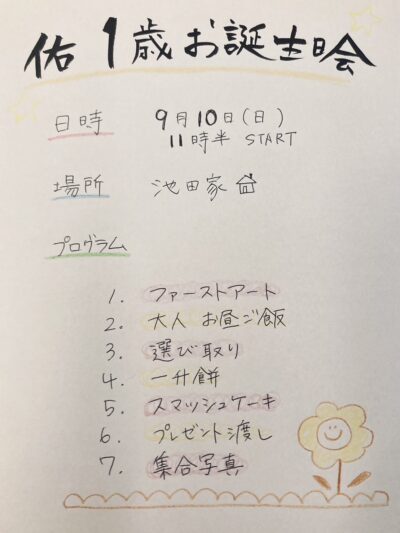 佑1歳お誕生日会
日時 9月10日(日)
11時半 START
場所 池田家
プログラム
1. ファーストアート
2. 大人 お昼ご飯
3. 選び取り
4. 一升餅
5. スマッシュケーキ
6. プレゼント渡し
7. 集合写真